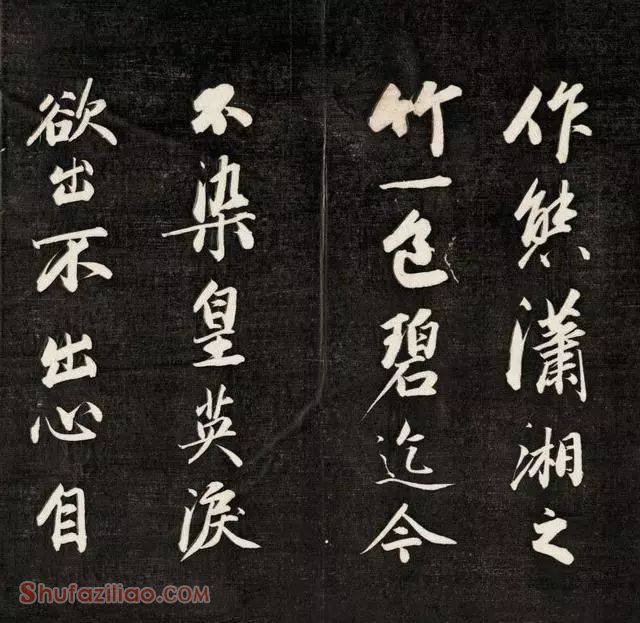 作態瀟湘之
竹一色碧迄今
不染皇英淚
欲出不出心自
Shufaziliao.com